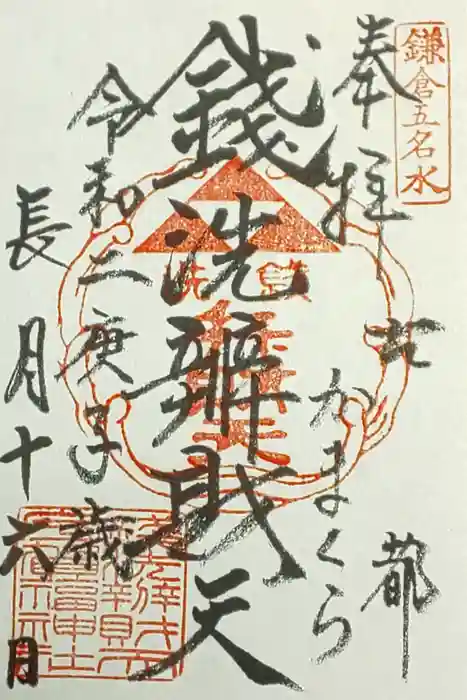 鎌倉五名水
奉拝
古都
かまくら
銭洗辨財天
令和二庚子歳
長月十六日
銭洗